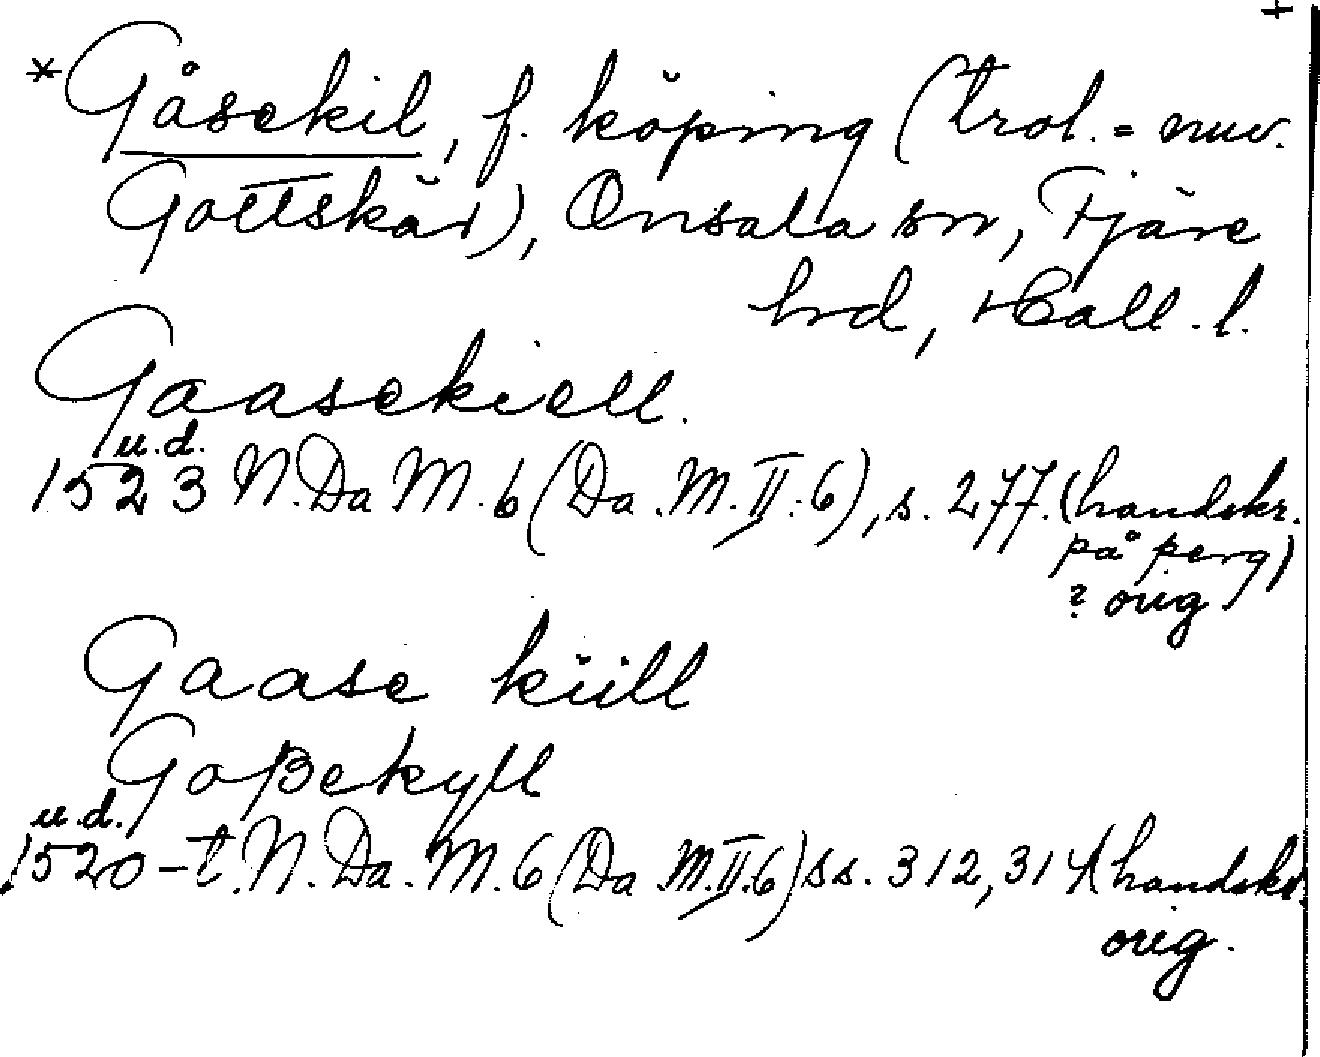 +
*Gåsekil, f. köping (trol. = nuv.
Gottskär), Onsala sn, Fjäre
hrd, Hall. l.
Gaasekiell.
u.d.
1523 N. Da M. 6 (Da. M. II. 6), s. 277. (handskr.
på perg)
? orig
Gaase kiill
Goßekyll
u.d.
1520-t. N. Da. M. 6 (Da. M. II. 6) ss. 312, 314 (handskr.
orig.